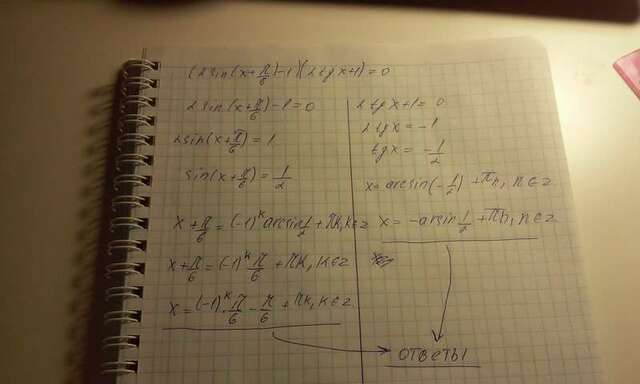 (2sin(x+π/6)-1)(2tgx+1)=0
2sin(x+π/6)-1=0
2sin(x+π/6)=1
sin(x+π/6)=1/2
x+π/6=(-1)^k arcsin 1/2+πk, k∈z
x+π/6=(-1)^k π/6+πk, k∈z
x=(-1)^k·π/6-π/6+πk, k∈z
2tgx+1=0
2tgx=-1
tgx=-1/2
x=arcsin(-1/2)+πn, n∈z
x=-arcsin 1/2+πn, n∈z
ОТВЕТЫ